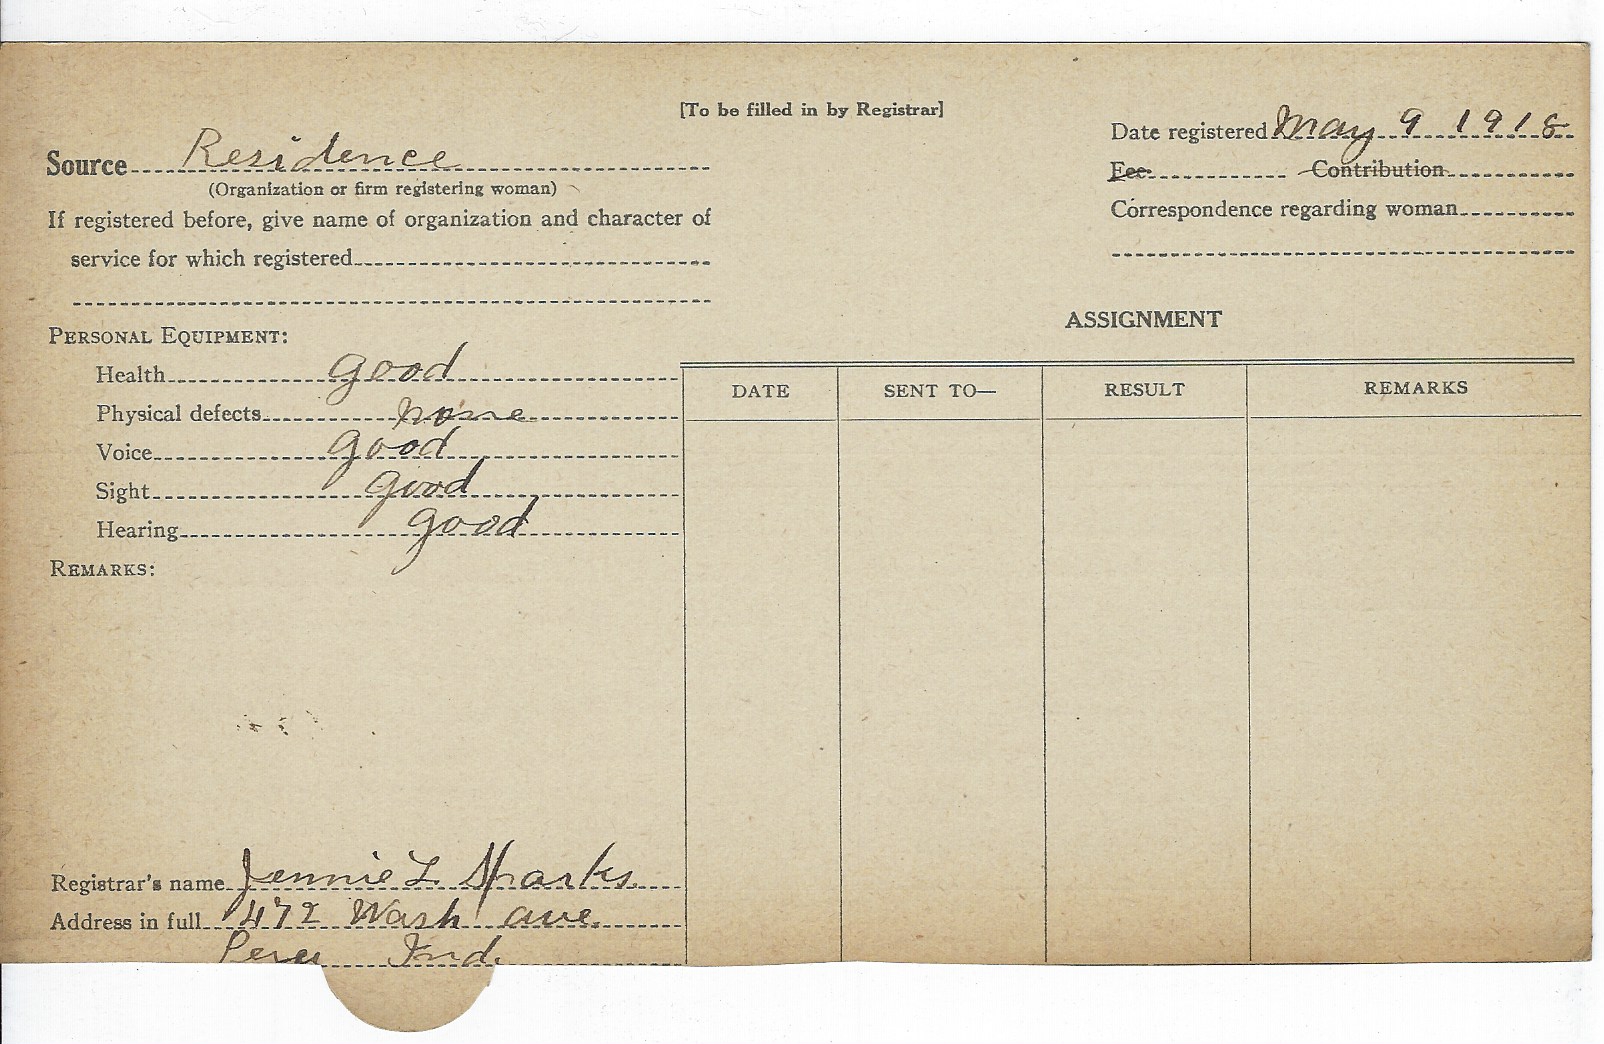 [To be filled in by Registrar]
Source Residence
(Organization or firm registering woman)
If registered before, give name of organization and character of
service for which registered
Date registered May 9 1918
Fee Contribution
Correspondence regarding woman
PERSONAL EQUIPMENT:
Health good
Physical defects none
Voice good
Sight good
Hearing good
REMARKS:
ASSIGNMENT
DATE SENT TO— RESULT REMARKS
Registrar's name Jennie L Sparks
Address in full 472 Wash ave.
Peru Ind.